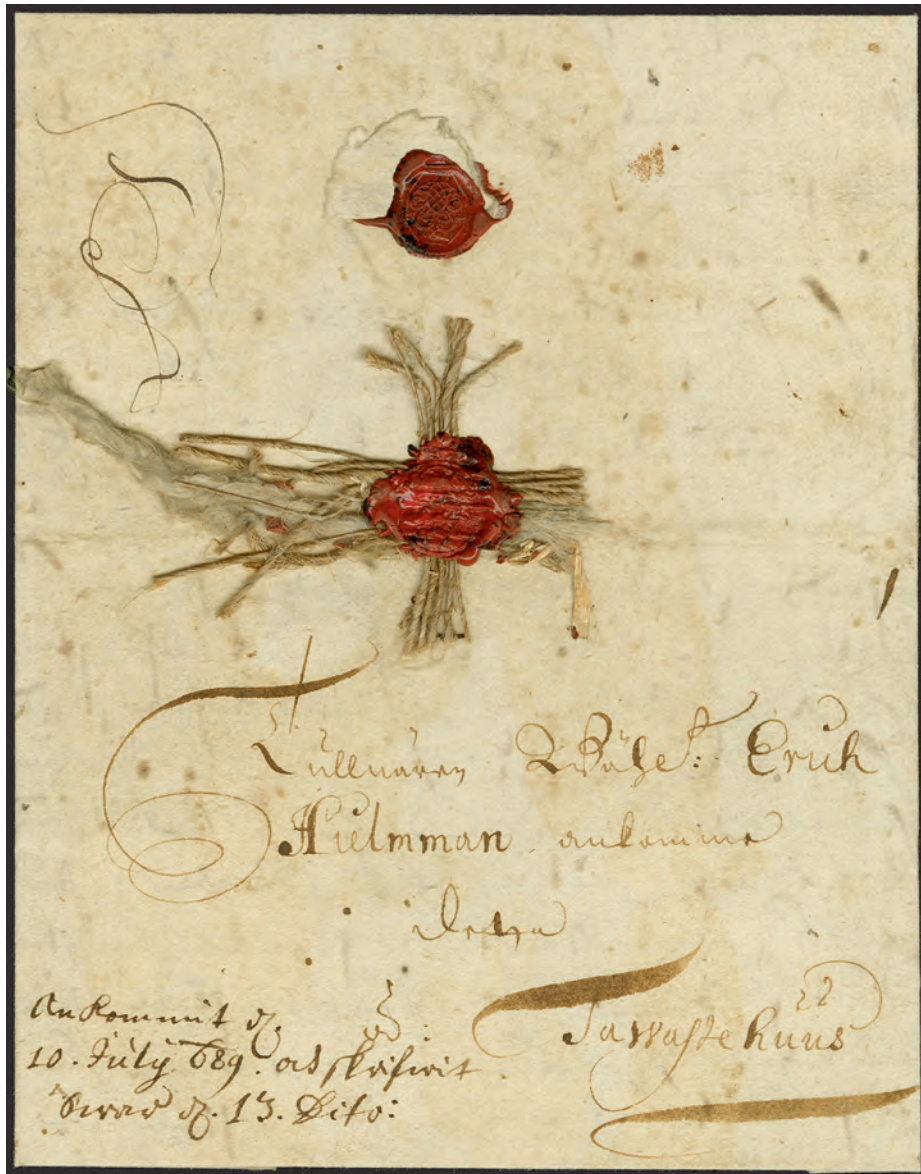 Tullnären Wähl: Erich
Hielmman ankomme
detta
Tawastehuus
Ankommit d.
10. July 689. och skrifwit
Swar d. 13. Dito: